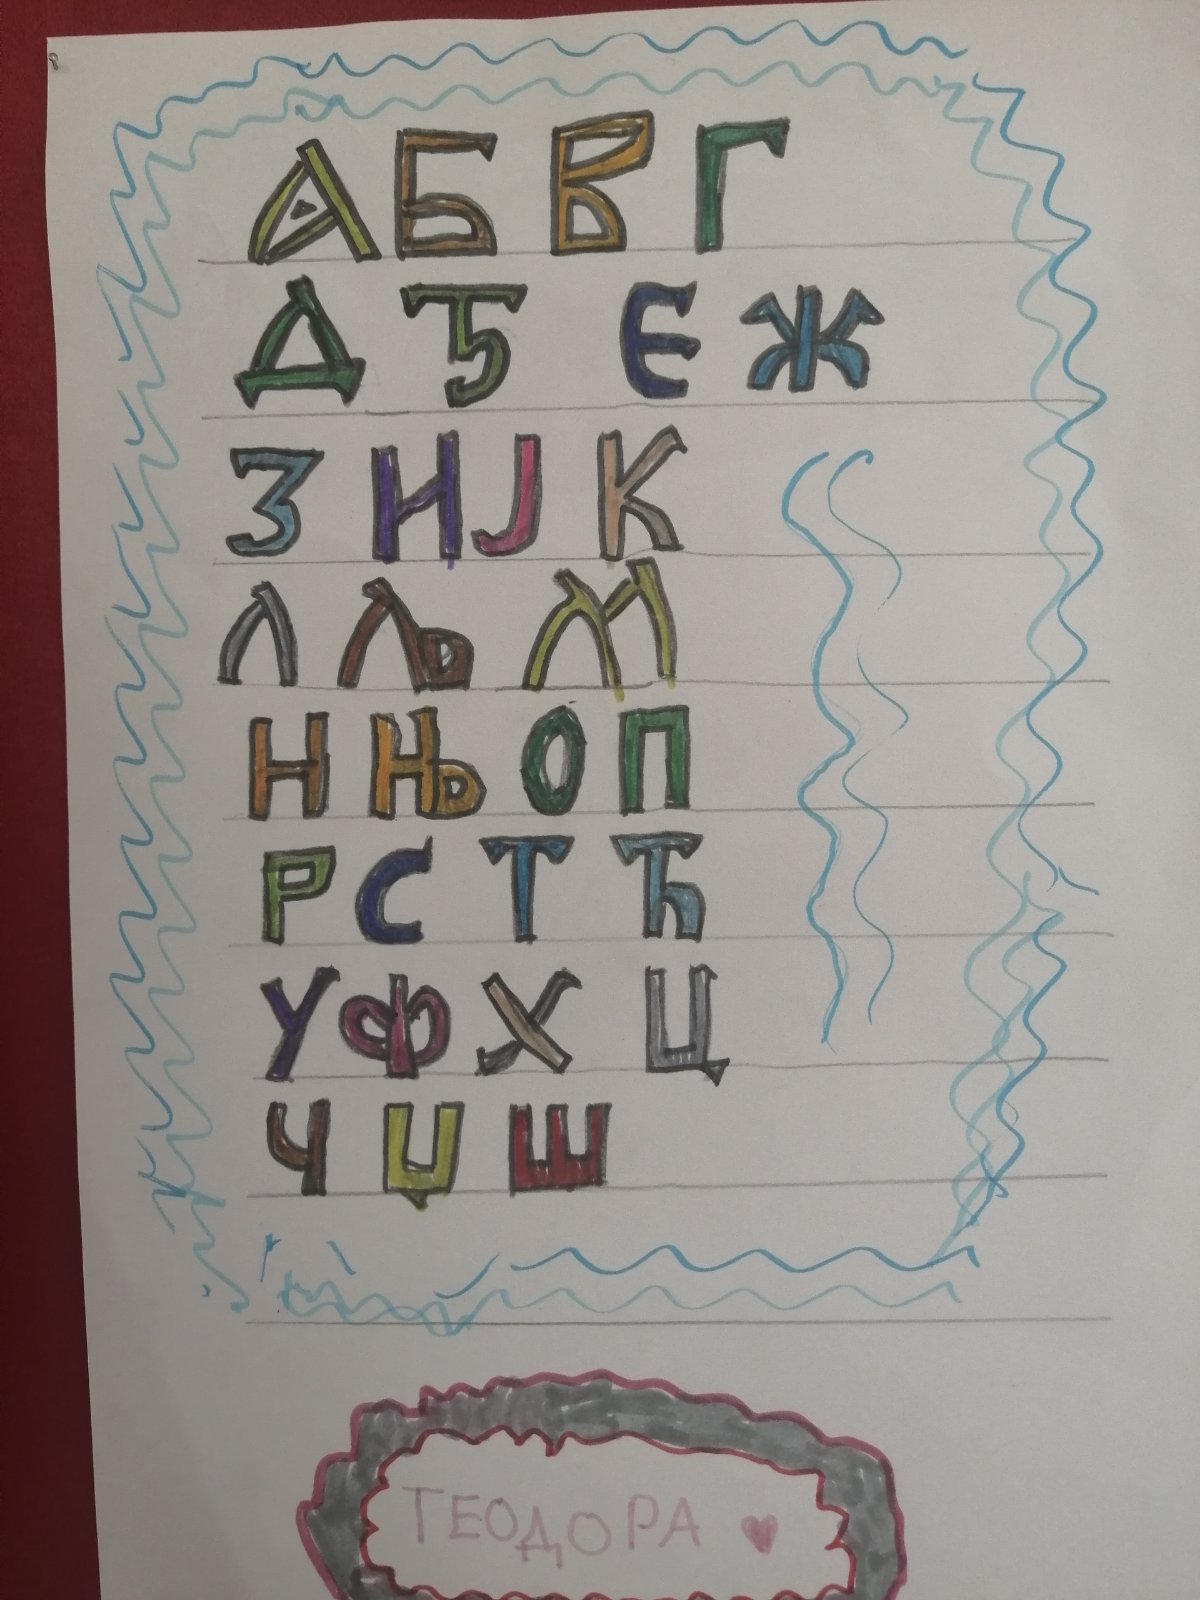 А Б В Г
Д Ђ Е Ж
З И Ј К
Л Љ М
Н Њ О П
Р С Т Ћ
У Ф Х Ц
Ч Џ Ш
ТЕОДОРА